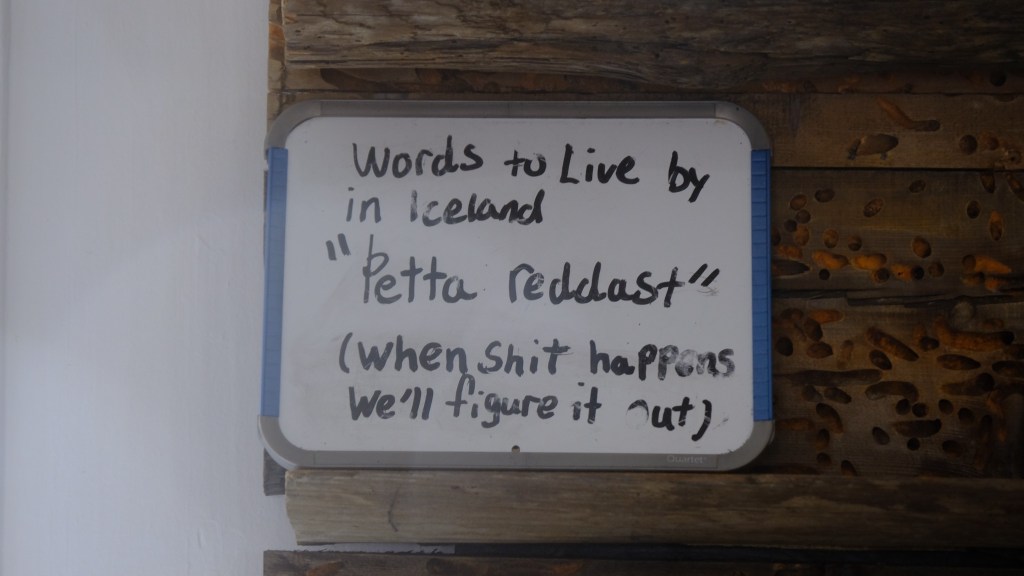 Words to Live by
in Iceland
"Þetta reddast"
(when shit happens
We'll figure it out)
Quartet